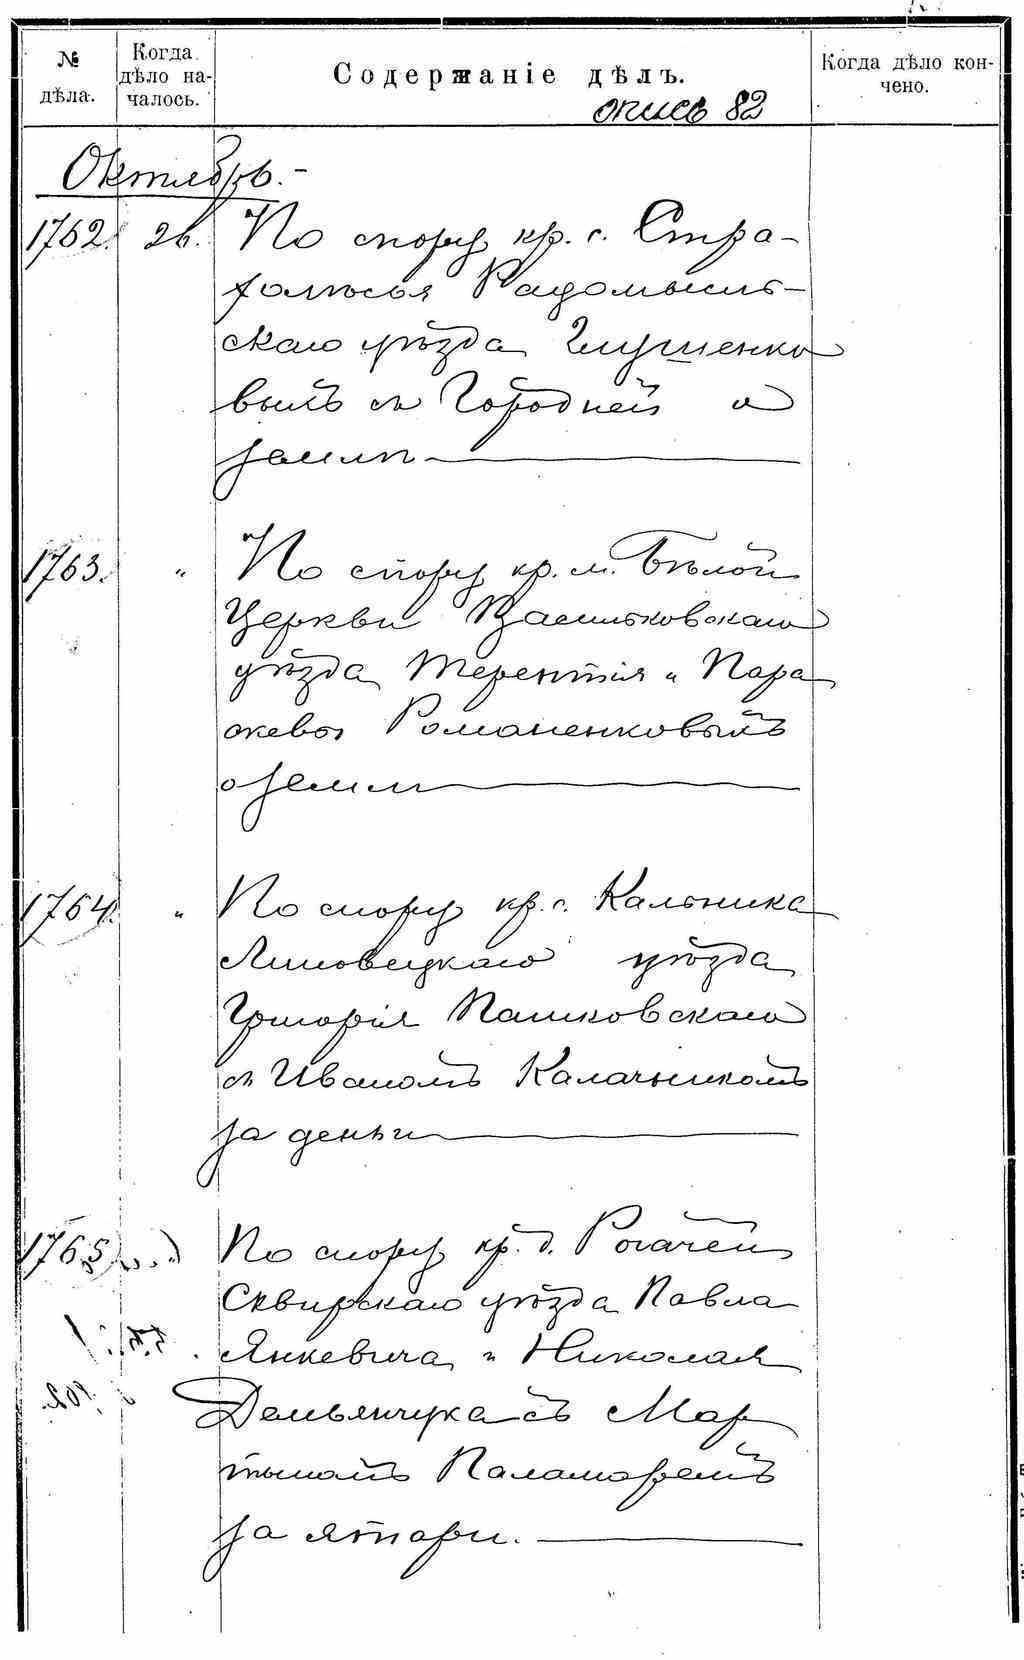 № дѣла.
Когда дѣло на-
чалось.
Содержаніе дѣлъ.
Когда дѣло кон-
чено.
опись 82
Октябрь.-
1762. 26. По спору кр. с. Стра-
холѣсья Радомысль-
скаго уѣзда Глушенко
выхъ съ Гороdней о
землѣ
1763. " По спору кр. м. Бѣлой
Церкви Васильковскаго
уѣзда Терентія и Пара
скевы Романенковыхъ
о землѣ
1764. " По спору кр. с. Кальника
Липовецкаго уѣзда
Григорія Пашковскаго
съ Иваномъ Калачникомъ
за деньги
1765 " По спору кр. д. Рогачей
Сквирскаго уѣзда Павла
Янкевича и Николая
Демьянчука съ Мар
тыномъ Паламаремъ
за